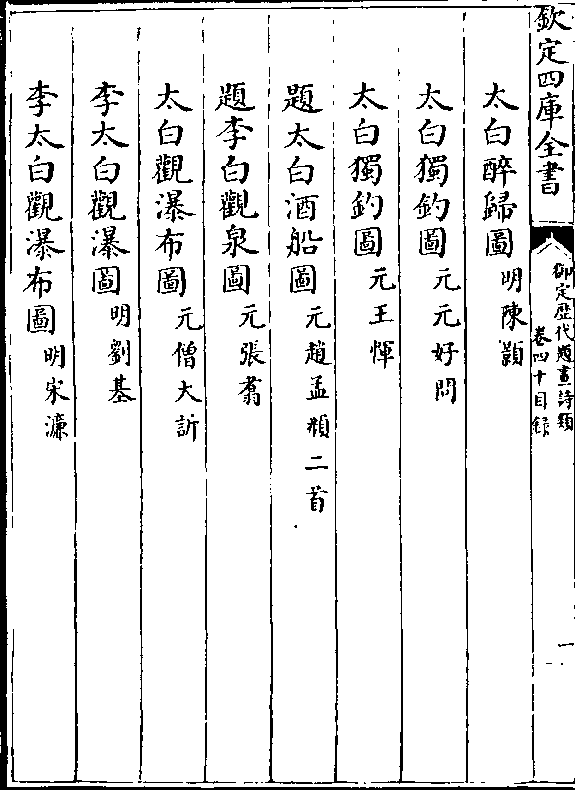 欽定四庫全書
御定歴代題畫詩類
卷四十目録
一
太白醉歸圖 明陳顥
太白獨釣圖 元元好問
太白獨釣圖 元王惲
題太白酒船圖 元趙孟頫二首
題李白觀泉圖 元張翥
太白觀瀑布圖 元僧大訢
李太白觀瀑圖 明劉基
李太白觀瀑布圖 明宋濂